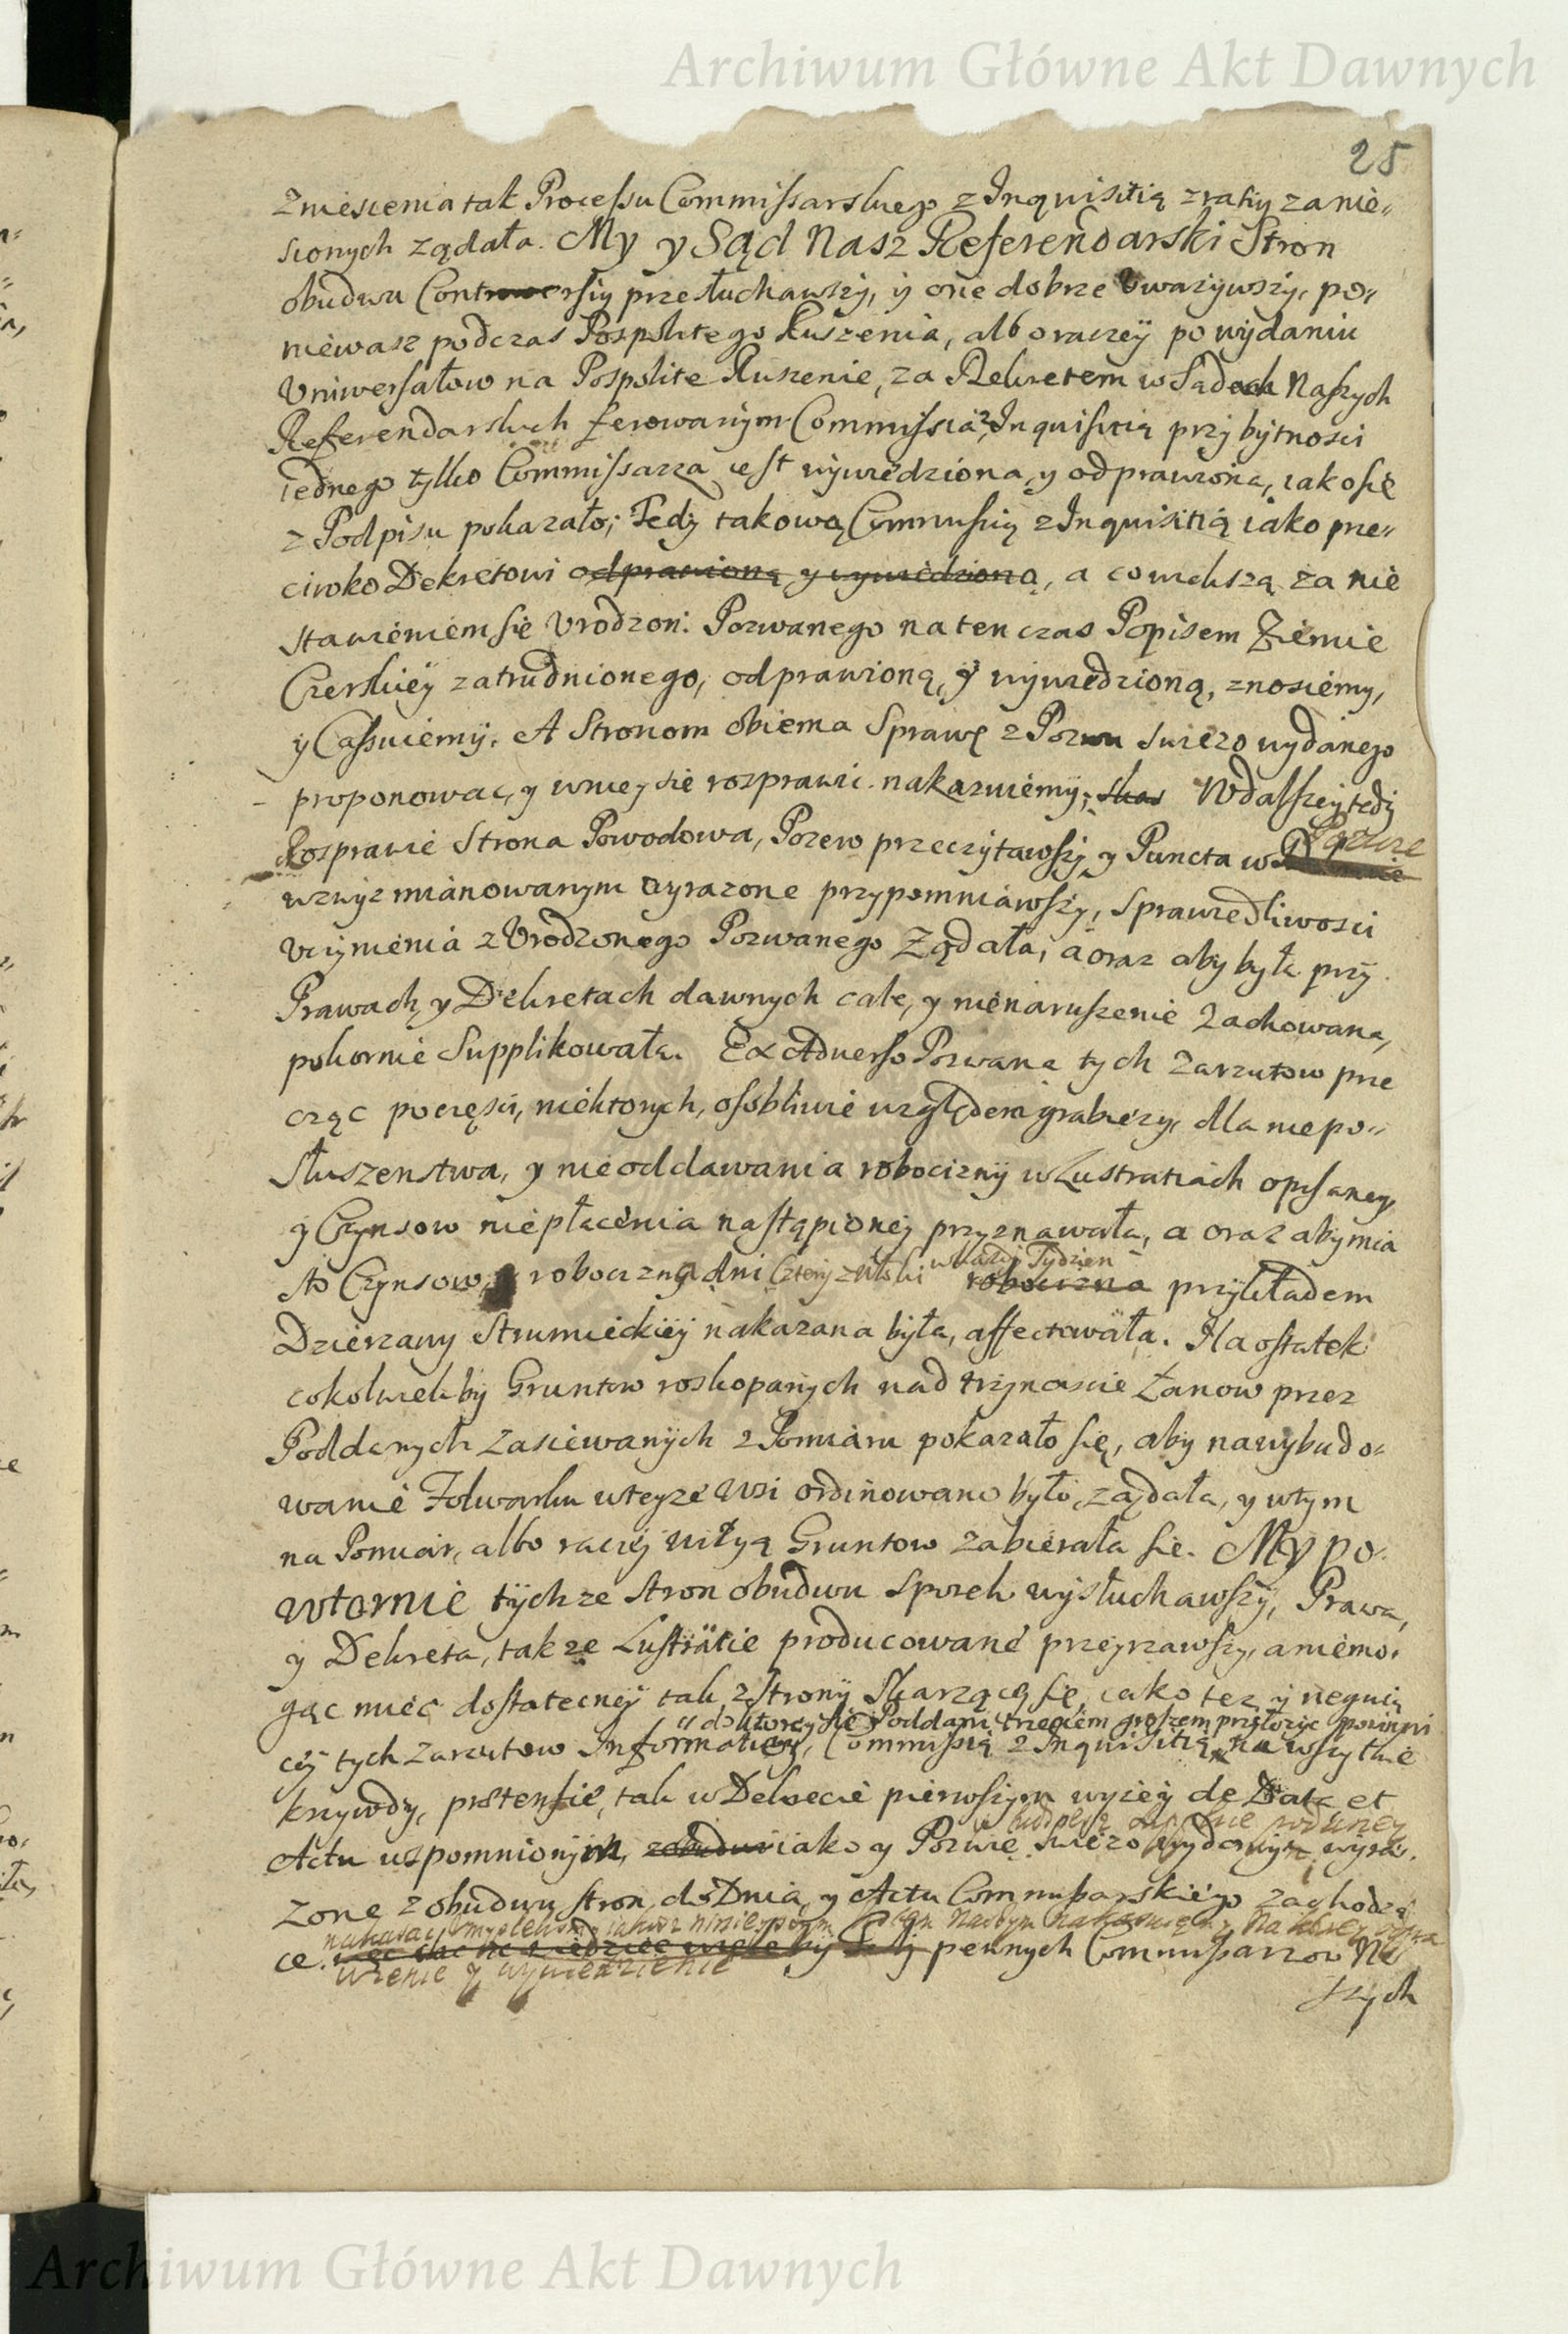 Archiwum Główne Akt Dawnych
25
Zniesienia tak Processu Commissarskiego z Inquisitią z raty zanie„
sionych ządała. My y Sąd Nasz Referendarski Stron
obudwu Controwersiy przesłuchawszy, ÿ one dobrze Uwazywszy, po„
niewasz podczas Pospolitego Ruszenia, albo raczeÿ po wÿdaniu
Uniwersałow na Pospolite Ruszenie, za Dekretem w Sądach Naszych
Referendarskich ferowanÿm Commissia z Inquisitią przÿ bÿtnosci
iednego tylko Commissarza iest wÿwiedziona, y odprawiona, iako się
z Podpisu pokazało; Tedÿ takową Commissią z Inquisitią iako prze„
ciwko Dekretowi odprawioną y wywiedzioną, a co większą za nie
stawieniem się Urodzon: Pozwanego na ten czas Popisem Ziemie
Czerskieÿ zatrudnionego, odprawioną, y wÿwiedzioną, znosiemy,
ÿ Cassuiemÿ. A Stronom obiema Sprawę z Pozwu swiezo wydanego
proponowac, y w nieÿ sie rozprawic nakazuiemÿ; W dalszeÿ tedÿ
Rosprawie Strona Powodowa, Pozew przeczÿtawszÿ y Puncta w Pozwie
wzwÿz mianowanym wyrazone przypomniawszÿ, Sprawiedliwosci
Uczÿnienia z Urodzonego Pozwanego Ządała, a oraz aby była przÿ
Prawach, y Dekretach dawnych cale, y nienaruszenie Zachowana,
pokornie Supplikowała. Ex Adverso Pozwana tych Zarzutow prze
cząc po częsci, niektorych, osobliwie względem grabiezy, dla niepo„
słuszenstwa, y nieoddawania robociznÿ w Lustratiach opisaney,
ÿ Czynsow niepłacenia nastąpioneÿ przyznawała, a oraz aby mia
sto Czynsow, robocizna dni Czterÿ z Włoki w kazdÿ Tydzien robocizna przÿkładem
Dzierzawy Strumieckieÿ nakazana była, affectowała. Na ostatek
cokolwiekbÿ Gruntow roskopanÿch nad trzynascie Łanow przez
Poddanych Zasiewanÿch z Pomiaru pokazało się, aby na wÿbudo„
wanie Folwarku w teyze Wsi ordinowano było, ządała, y w tym
na Pomiar, albo raczeÿ wizyą Gruntow zabierała się. My po
wtornie tÿchze Stron obudwu Sporek wÿsłuchawszÿ, Prawa,
y Dekreta, takze Lustratie producowane przeÿrzawszy, a niemo„
gąc miec dostatecneÿ tak z Stronÿ Skarząceÿ się, iako tez y neguią
do ktorey się Poddani trzeciem groszem przyłozyc powinni
ceÿ tych zarzutow Informatiey, Commissią z Inquisitią, na wszytkie
krzywdy, praetensie, tak w Dekrecie pierwszÿm wyzeÿ de Data et
Actu wspomnionÿm, iako y Pozwie swiezo wydanym wyra„
zone z obudwu stron do Dnia, y Actu Commissarskiego zachodzą
ce. pewnych Commissarzow Na
wzenie y wywiedzienie
szych
Archiwum Główne Akt Dawnych